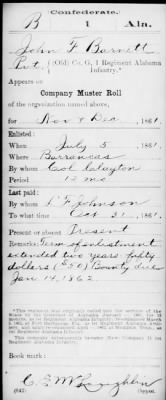 Confederate.
B 1 Ala.
John F Barnett
Pvt., (Old) Co. G, 1 Regiment Alabama
Infantry.*
Appears on
Company Muster Roll
of the organization named above,
for Nov & Dec, 1861.
Enlisted:
When July 5, 1861.
Where Barrancas
By whom Col Clayton
Period 12 mo
Last paid:
By whom Johnson
To what time Oct 31, 1861.
Present or absent Present
Remarks: Term of enlistment
extended two years fifty
dollars ($50) Bounty due
Jan 14, 1862
Book mark:
C. E. McLoughlin
(642) Copyist.